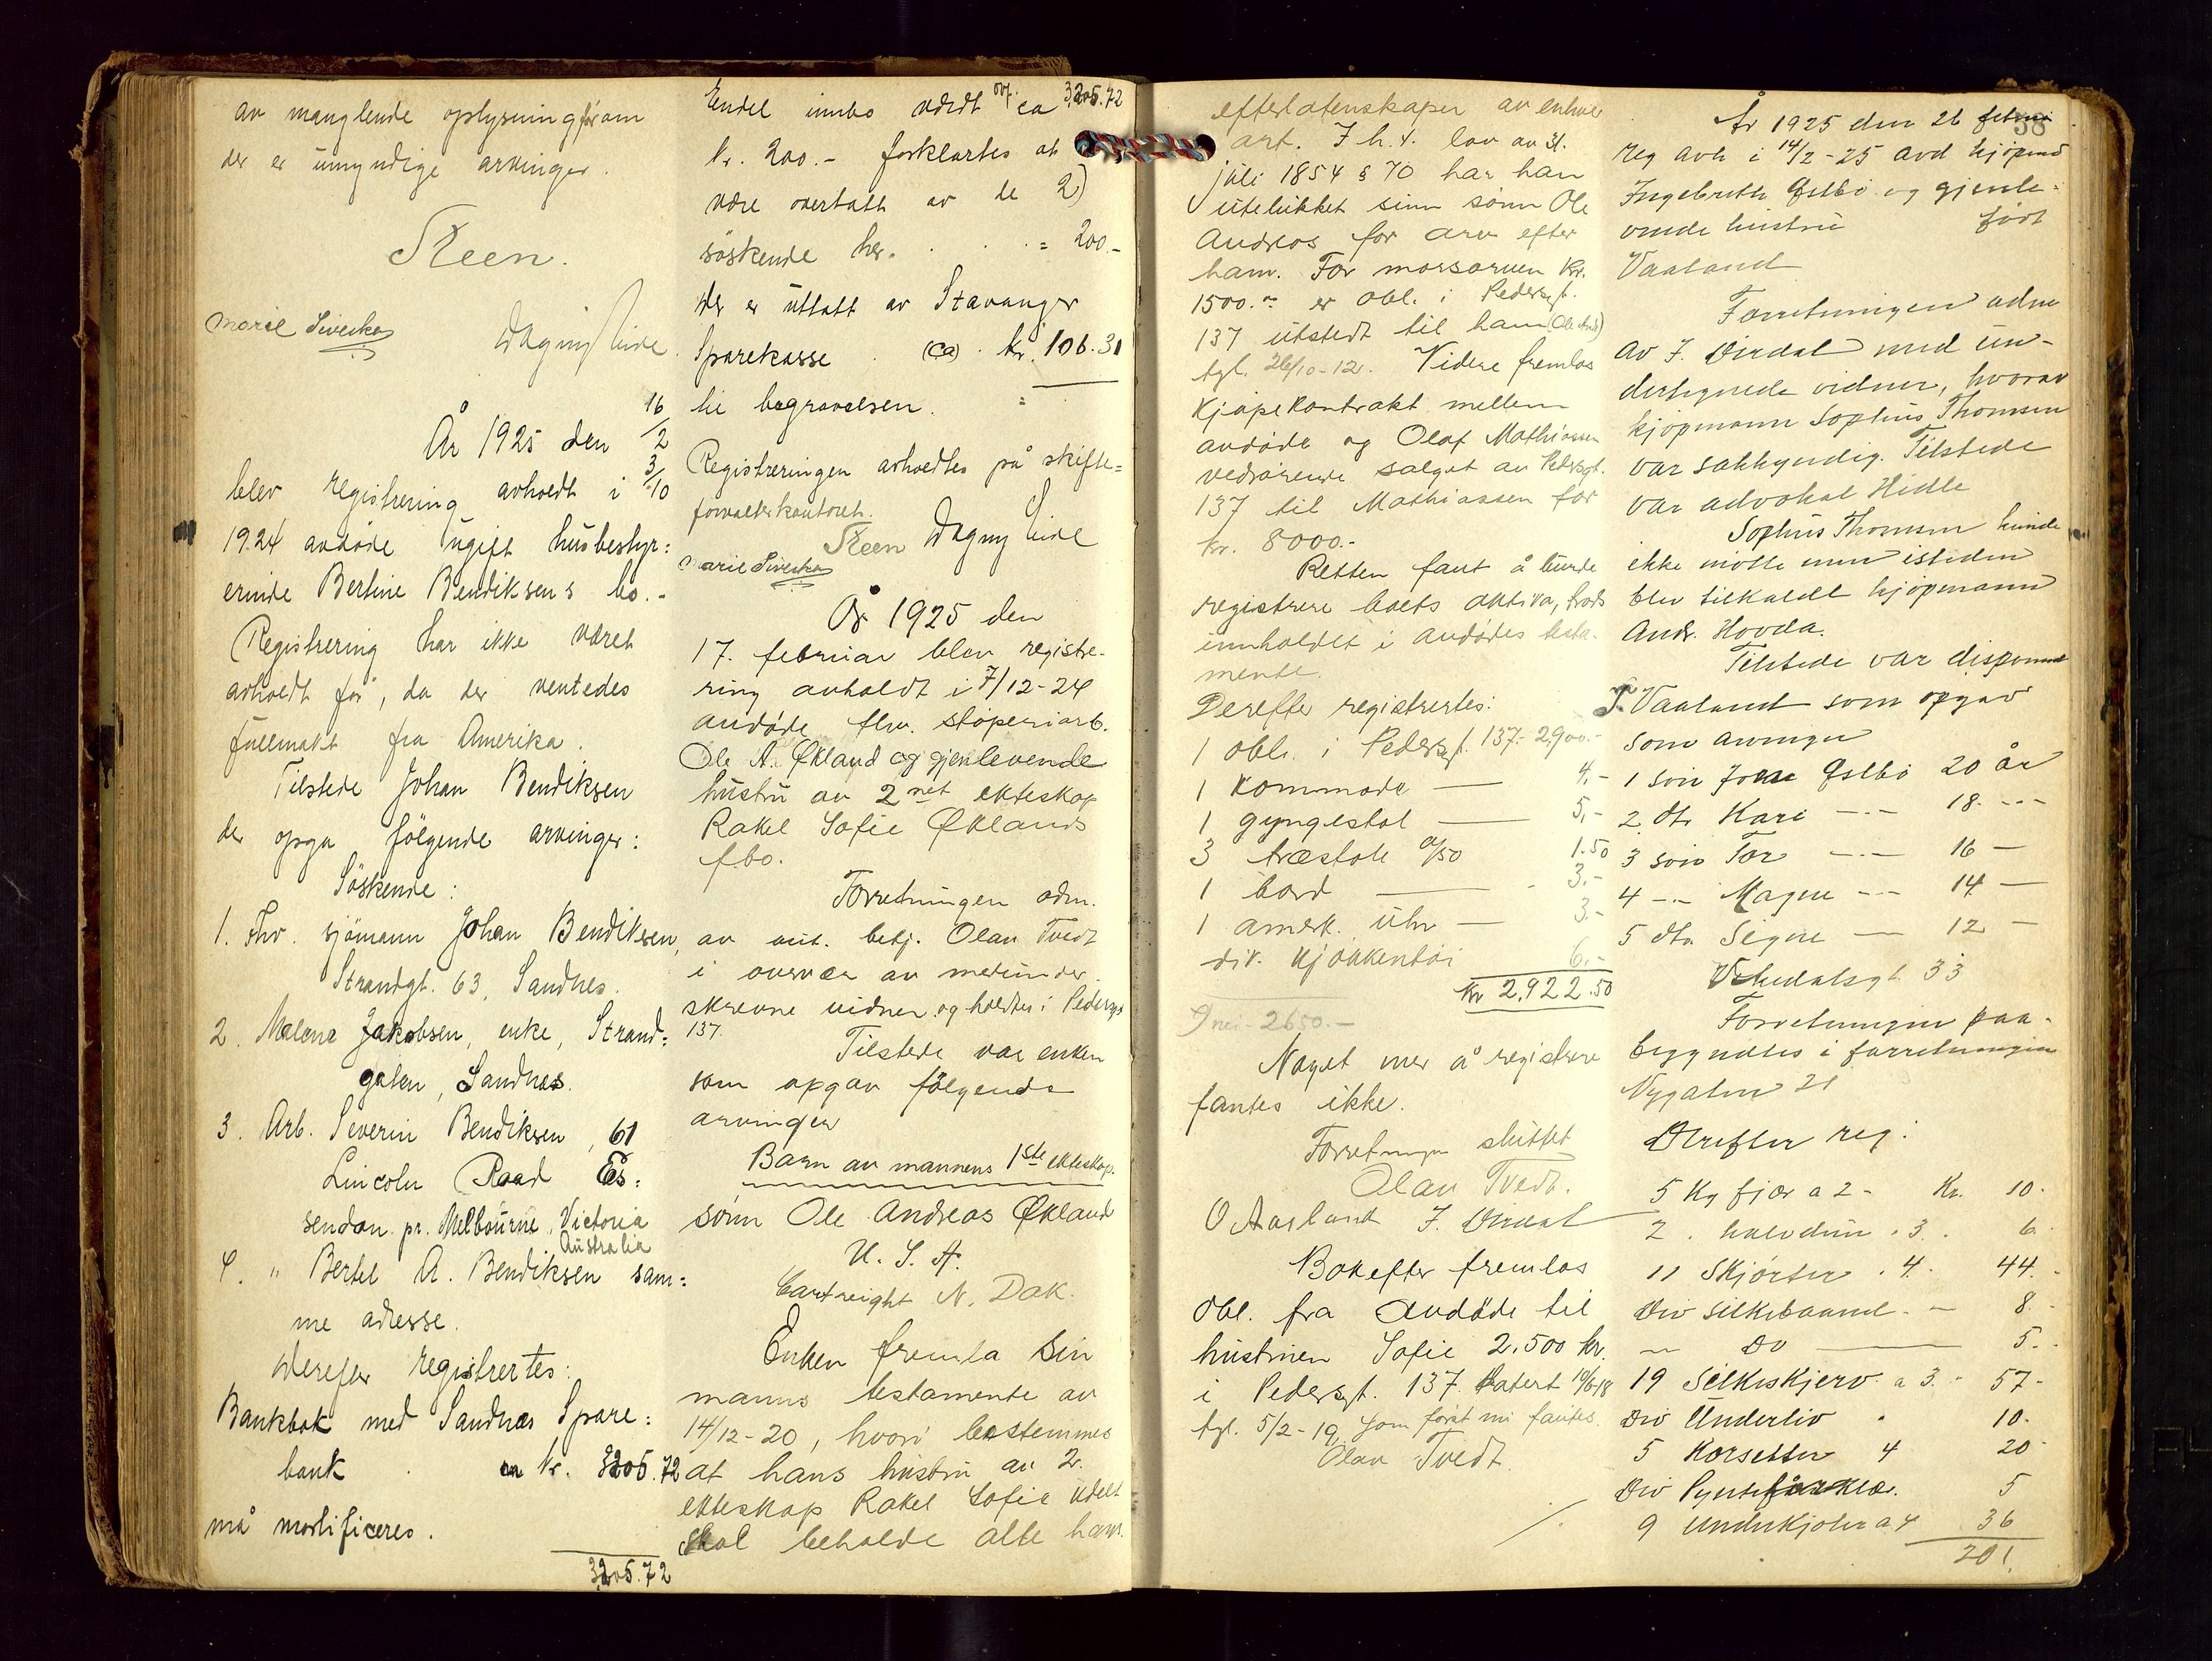 av manglende oplysning om
der er umyndige arvinger.
Steen.
Marie Sivertsen
Dagny Eide.
År 1925 den 16/2
blev registrering avholdt i 3/10
1924 avdøde ugift husbestyr=
erinde Bertine Bendiksens bo.-
Registrering har ikke været
avholdt før, da der ventedes
fullmakt fra Amerika.
Tilstede Johan Bendiksen
der opga følgende arvinger:
Søskende:
1. Fhv. sjømann Johan Bendiksen,
Strandgt. 63, Sandnes.
2. Malena Jakobsen, enke, Strand=
gaten, Sandnes.
3. Arb. Severin Bendiksen, 61
Lincoln Road Es=
sendon pr. Melbourne, Victoria
Australia
4. " Bertel A. Bendiksen sam=
me adresse.
Derefter registrertes:
Bankbok med Sandnes Spare=
bank . kr. 3205.72
må mortificeres.
3205.72
ovf. 3205.72
Endel innbo værdt ca
kr. 200.- forklartes at
være overtatt av de 2)
søskende her. . . . = 200.-
Der er uttatt av Stavanger
Sparekasse . (ca) . kr. 106.31
til begravelsen. =
Registreringen avholdtes på skifte=
forvalterkontoret.
Steen Dagny Eide
Marie Sivertsen
År 1925 den
17. februar blev registre-
ring avholdt i 7/12-24
avdøde fhv. støperiarb.
Ole A. Økland og gjenlevende
hustru av 2net ekteskap
Rakel Sofie Øklands
fbo.
Forretningen adm.
av aut. betj. Olav Tvedt
i overvær av medunder-
skrevne vidner og holdtes i Pedersgt
137.
Tilstede var enken
som opgav følgende
arvinger
Barn av mannens 1ste ekteskap.
sønn Ole Andreas Økland
U. S. A.
Cartreight N. Dak.
Enken fremla sin
manns testamente av
14/12-20, hvori bestemmes
at hans hustru av 2.
ekteskap Rakel Sofie udelt
skal beholde alle hans
efterlatenskaper av enhver
art. I h.t. lov av 31.
juli 1854 § 70 har han
utelukket sinn sønn Ole
Andreas for arv efter
ham. For morsarven kr.
1500.- er obl. i Pedersgt.
137 utstedt til ham (Ole And)
tgl. 26/10-12. Videre fremlas
Kjøpekontrakt mellem
avdøde og Olaf Mathiassen
vedrørende salget av Pedersgt.
137 til Mathiassen for
kr. 8000.-
Retten fant å burde
registrere boets aktiva, trods
innholdet i avdødes testa-
mente.
Derefter registrertes:
1 obl. i Pedersgt. 137.- 2,900.-
1 Kommode — 4.-
1 gyngestol — 5.-
3 træstole a/50 1.50
1 bord — 3.-
1 amerk. uhr — 3.-
div. kjøkkentøi 6.-
Kr 2,922.50
2650.-
Noget mer å registrere
fantes ikke.
Forretningen sluttet
Olav Tvedt.
O Aarland J. Dirdal
Bakefter fremlas
obl. fra avdøde til
hustruen Sofie 2.500 kr.
i Pedersgt. 137. Datert 10/6-18
tgl. 5/2-19, som først nu fantes.
Olav Tvedt.
38
År 1925 den 26 februar
reg avh i 14/2-25 avd kjøpmd
Ingebreth Østbø og gjenle-
vende hustru født
Vaaland
Forretningen adm
av J. Dirdal med un-
dertegnede vidner, hvorav
kjøpmann Sophus Thomsen
var sakkyndig. Tilstede
var advokat Hidle
Sophus Thomsen kunde
ikke møtte men isteden
blev tilkaldt kjøpmann
Andr. Hovda.
Tilstede var disponent
T. Vaaland som opgav
som arvinger
1 søn Jone Østbø 20 år
2 dtr Kari -"- 18 -"-
3 søn Tor -"- 16 —
4 -"- Magne -"- 14 —
5 dtr Signe — 12 —
Vikedalsgt. 33
Forretningen paa-
begyndtes i forretningen
Nygaten 21
Derefter reg:
5 Kg fjær a 2- Kr. 10.-
2 . halvdun . 3. . 6.
11 Skjørter . 4. 44.-
Div silkebaand. — 8.-
— Do — 5.-
19 Silkeskjerv a 3.- 57-
Div Underliv . 10.-
5 Korsetter 4 20-
Div Pynteforklær. 5
9 Underkjoler a 4 36
201.